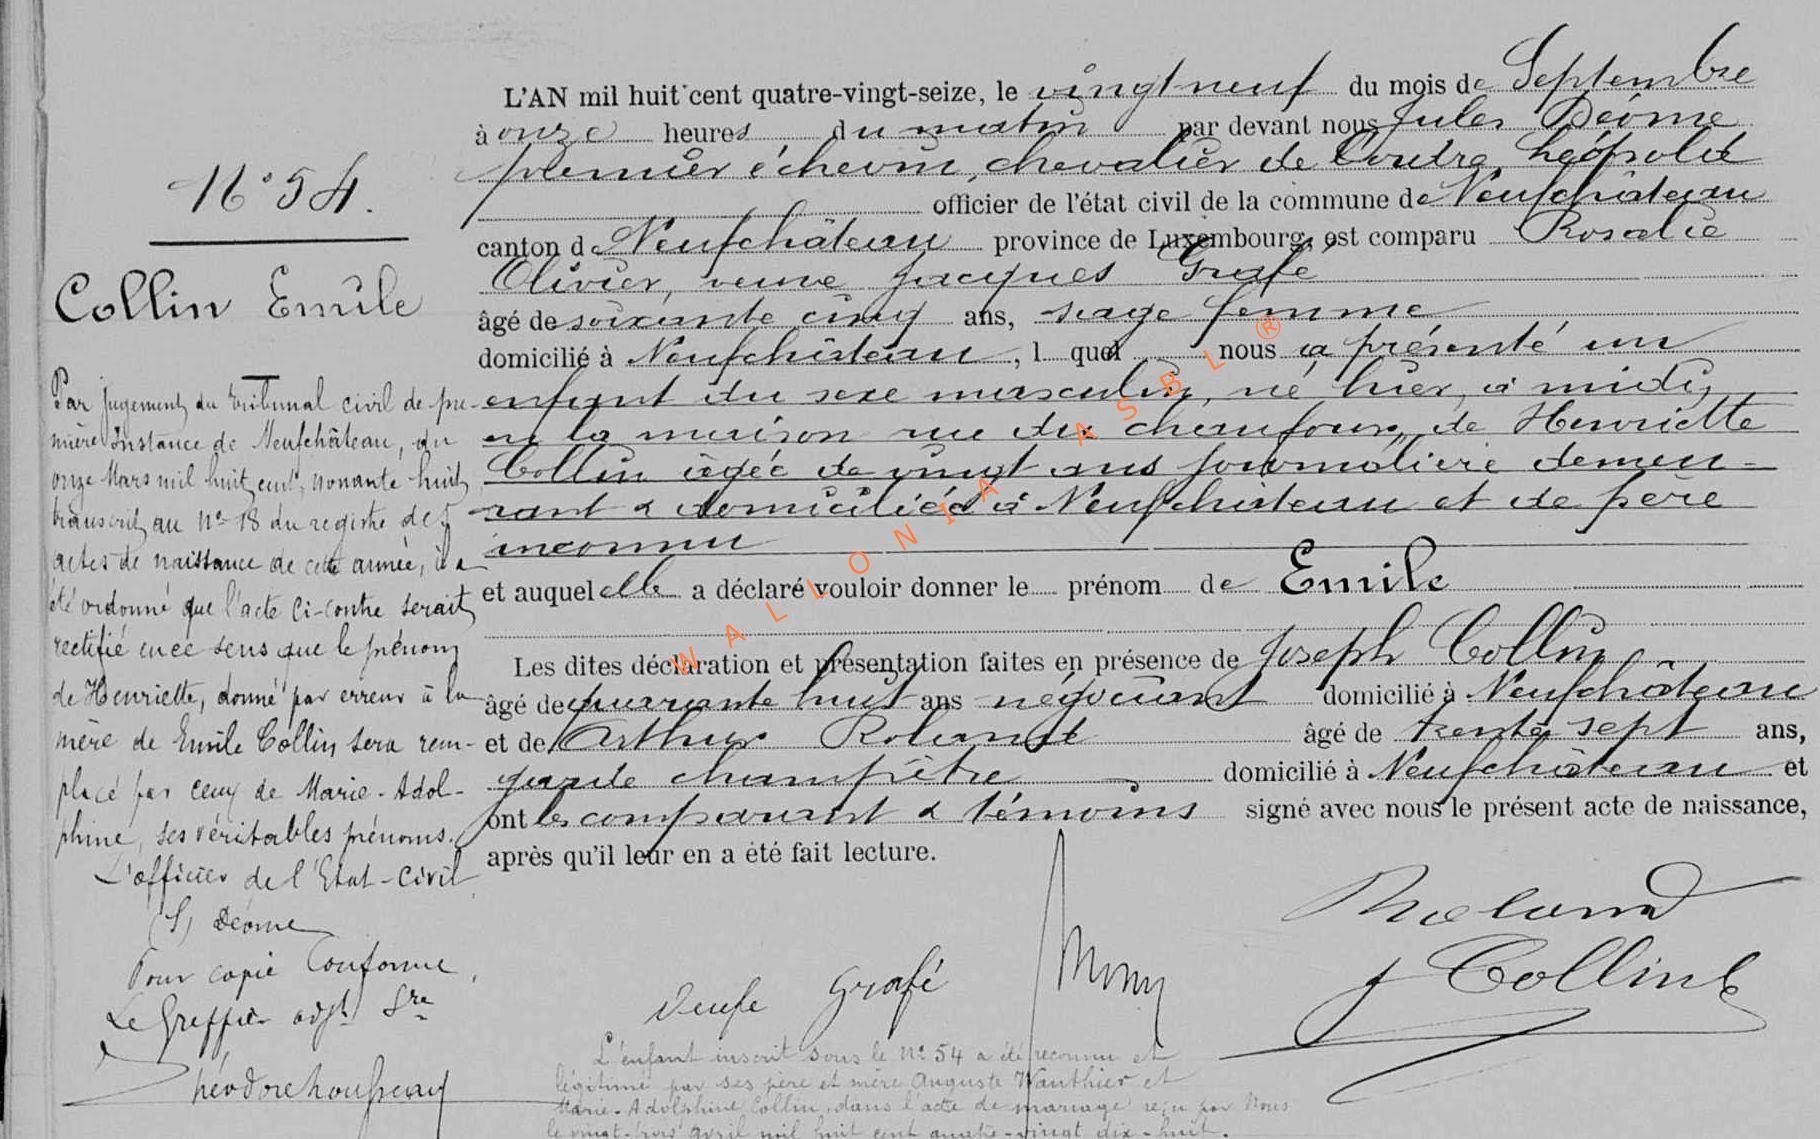 N° 54.
Collin Emile
Par jugement du Tribunal civil de pre-
mière Instance de Neufchâteau, du
onze Mars mil huit cent nonante huit
transcrit au N° 18 du registre des
actes de naissance de cette année, il a
été ordonné que l'acte ci-contre serait
rectifié en ce sens que le prénom
de Henriette, donné par erreur à la
mère de Emile Collin, sera rem-
placé par ceux de Marie-Adol-
phine, ses véritables prénoms.
L'officier de l'Etat-Civil
(S) Déome
Pour copie Conforme,
Le Greffier adjt
L'AN mil huit cent quatre-vingt-seize, le vingt neuf du mois de Septembre
à onze heures du matin par devant nous Jules Déome
premier échevin, chevalier de l'ordre Léopold
officier de l'état civil de la commune de Neufchâteau
canton de Neufchâteau province de Luxembourg, est comparu Rosalie
Olivier, veuve Jacques Grafé
âgé de soixante cinq ans, sage femme
domicilié à Neufchâteau, l quel nous a présenté un
enfant du sexe masculin, né hier, à midi,
en la maison rue du chaufour, de Henriette
Collin âgée de vingt ans journalière demeu-
rant & domiciliée à Neufchâteau et de père
inconnu
et auquel elle a déclaré vouloir donner le prénom de Emile
Les dites déclaration et présentation faites en présence de Joseph Collin
âgé de quarante huit ans négociant domicilié à Neufchâteau
et de Arthur Roland âgé de trente sept ans,
garde champêtre domicilié à Neufchâteau et
ont les comparant & témoins signé avec nous le présent acte de naissance,
après qu'il leur en a été fait lecture.
Roland
Veuve Grafé
J Collin
L'enfant inscrit sous le N° 54 a été reconnu et
légitimé par ses père et mère Auguste Wauthier et
Marie-Adolphine Collin, dans l'acte de mariage reçu par Nous
le vingt-trois avril mil huit cent quatre-vingt dix-huit.
WALLONIA ASBL ®